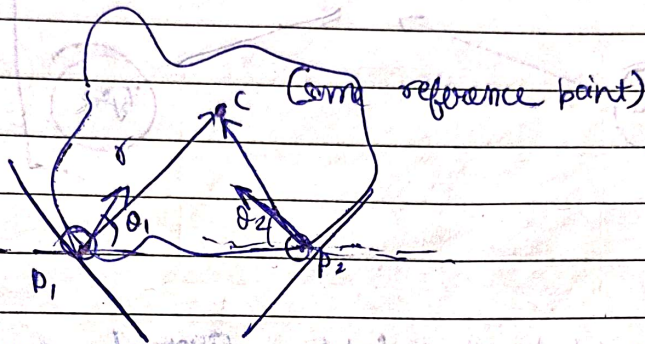 C (some reference point)
r
θ1
θ2
P1
P2